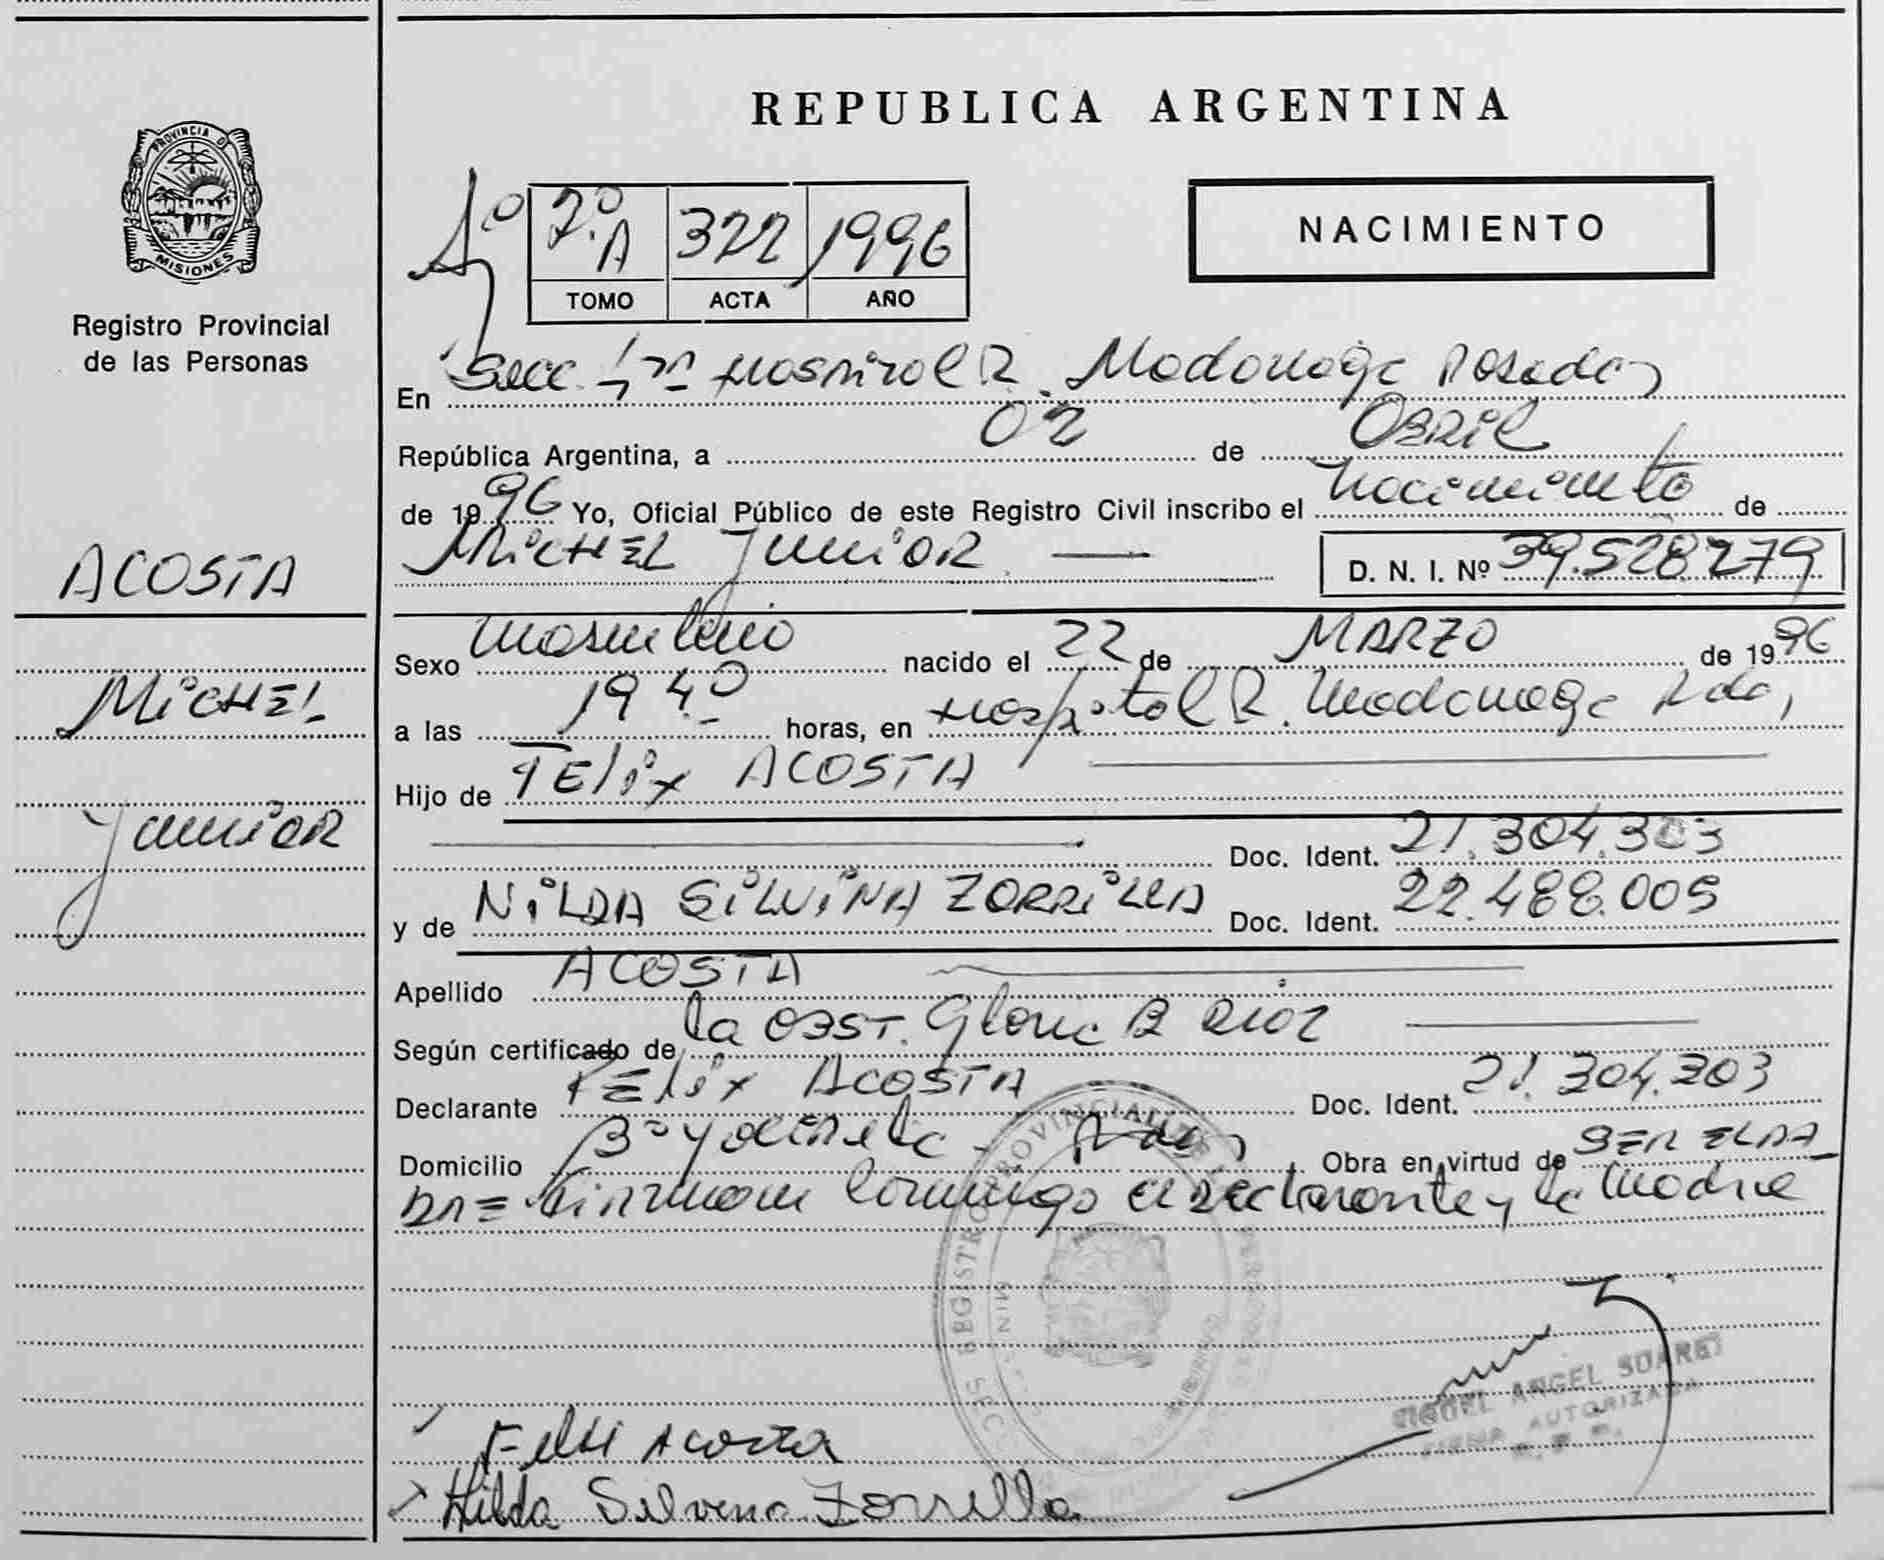 PROVINCIA DE
MISIONES
Registro Provincial
de las Personas
ACOSTA
MiCHEL
JuniOR
REPUBLICA ARGENTINA
NACIMIENTO
2º A 322 1996
TOMO ACTA AÑO
En Secc. 1ra Hospital R. Madariaga Posadas
República Argentina, a 02 de Abril
de 1996 Yo, Oficial Público de este Registro Civil inscribo el nacimiento de
MiCHEL JuniOR D. N. I. Nº 39.528.279
Sexo masculino nacido el 22 de MARZO de 1996
a las 19 40 horas, en Hospital R. Madariaga Pdas,
Hijo de FEliX ACOSTA
Doc. Ident. 21.304.303
y de NiLDA SiLViNA ZORRiLLA Doc. Ident. 22.488.005
Apellido ACOSTA
Según certificado de la OBST. Gloria B Rios
Declarante FEliX ACOSTA Doc. Ident. 21.304.303
Domicilio Bº Yacireta Pdas Obra en virtud de SER EL PA
DRE Firman conmigo el declarante y la Madre
REGISTRO PROVINCIAL DE L
MIGUEL ANGEL SUAREZ
FIRMA AUTORIZADA
Felix Acosta
Hilda Selvena Zorrilla